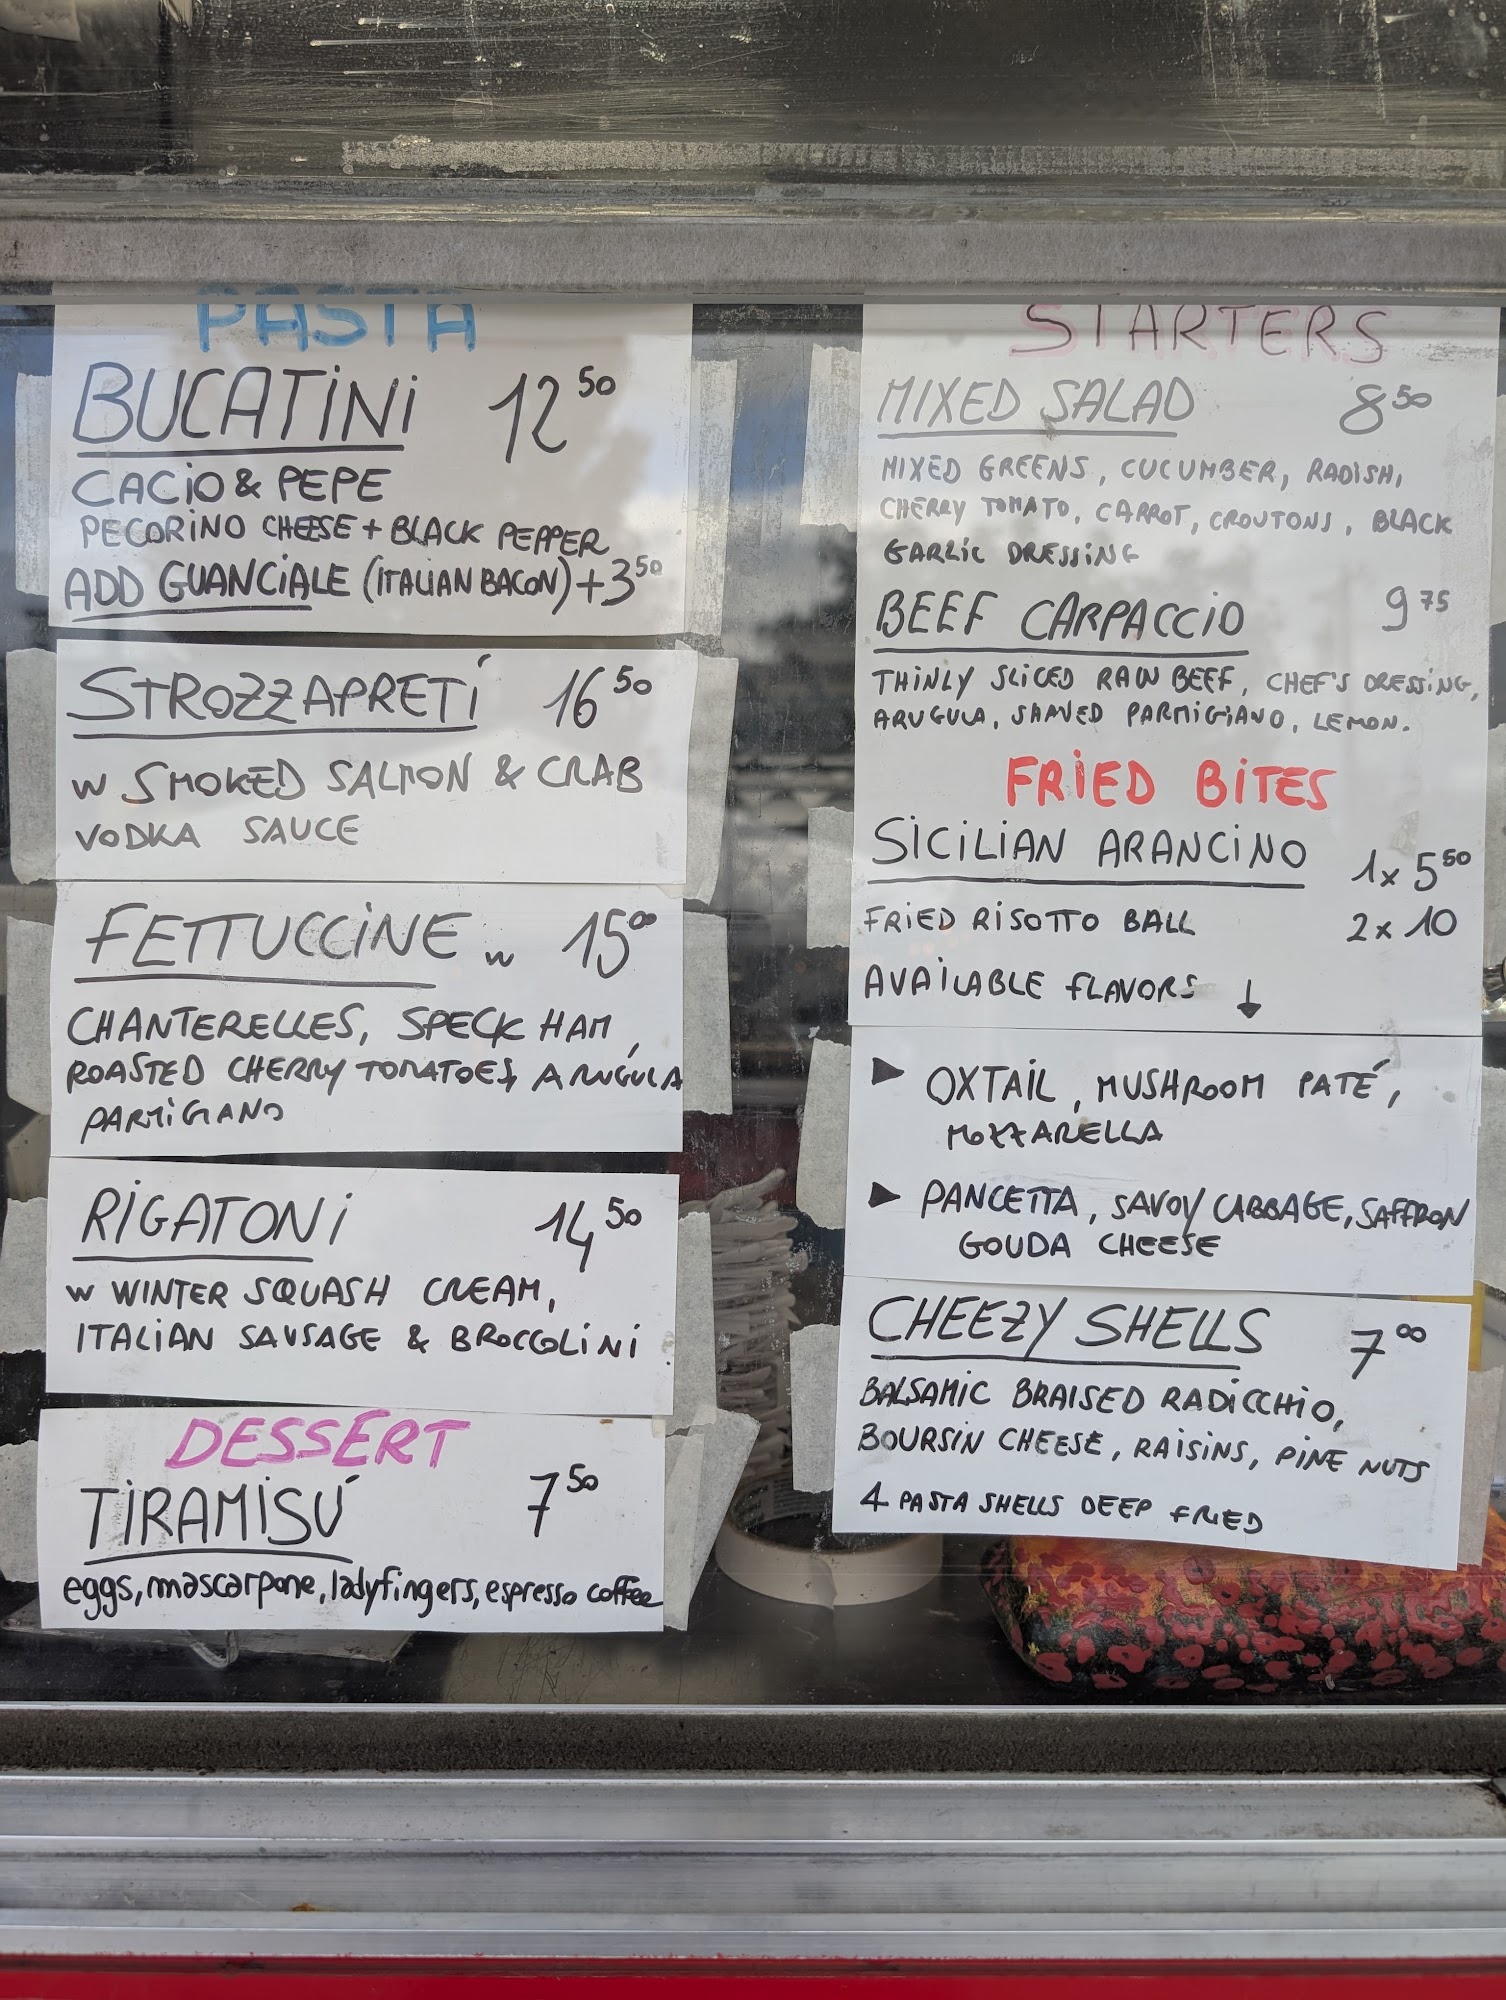 PASTA
BUCATINI 12 50
CACIO & PEPE
PECORINO CHEESE + BLACK PEPPER
ADD GUANCIALE (ITALIAN BACON) +3 50
STROZZAPRETI 16 50
W SMOKED SALMON & CRAB
VODKA SAUCE
FETTUCCINE W 15 00
CHANTERELLES, SPECK HAM,
ROASTED CHERRY TOMATOES, ARUGULA
PARMIGIANO
RIGATONI 14 50
W WINTER SQUASH CREAM,
ITALIAN SAUSAGE & BROCCOLINI
DESSERT
TIRAMISÚ 7 50
eggs, mascarpone, ladyfingers, espresso coffee
STARTERS
MIXED SALAD 8 50
MIXED GREENS, CUCUMBER, RADISH,
CHERRY TOMATO, CARROT, CROUTONS, BLACK
GARLIC DRESSING
BEEF CARPACCIO 9 75
THINLY SLICED RAW BEEF, CHEF'S DRESSING,
ARUGULA, SHAVED PARMIGIANO, LEMON.
FRIED BITES
SICILIAN ARANCINO 1x 5 50
FRIED RISOTTO BALL 2x 10
AVAILABLE FLAVORS ↓
► OXTAIL, MUSHROOM PATÉ,
MOZZARELLA
► PANCETTA, SAVOY CABBAGE, SAFFRON
GOUDA CHEESE
CHEEZY SHELLS 7 00
BALSAMIC BRAISED RADICCHIO,
BOURSIN CHEESE, RAISINS, PINE NUTS
4 PASTA SHELLS DEEP FRIED